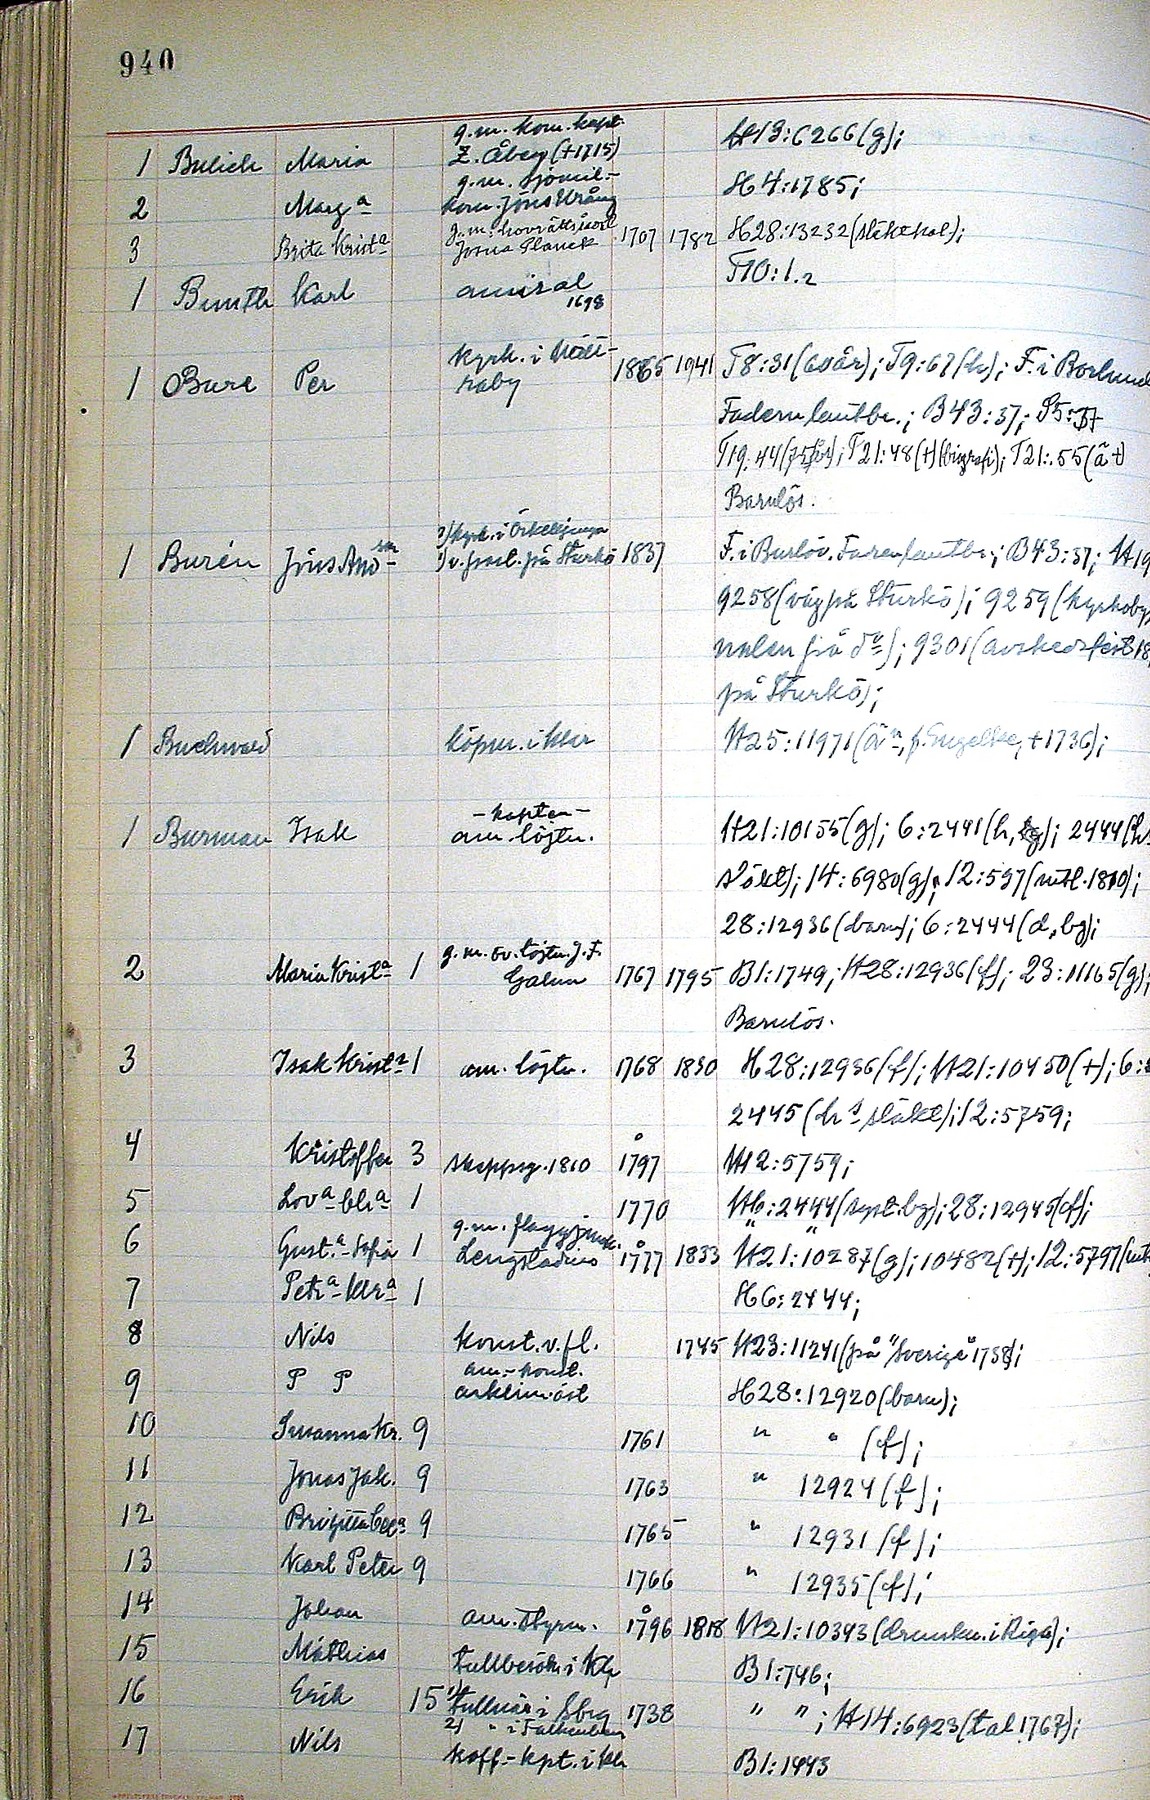 940
g.m. kom. kapt.
1 Bulich Maria Z. Åberg (+1715) H13:6266(g);
g.m. sjömil.-
2 Marg a kom. Jöns Urång H4:1785;
3 Brita Krist a g.m. hovrättsassl Josua Planck 1707 1782 H28:13232(släktkal);
1 Bunth Karl amiral 1698 T10:1.2
kyrk. i Hätt-
1 Bure Per raby 1865 1941 T8:31(60år); T9:67(h); F. i Borlund
Fadern lantbr.; B43:37; S5:37
T19:44(75år); T21:48(+)(biografi); T21:55(å+)
Barnlös.
2) kyrk. i Örkelljunga
1 Burén Jöns And sn 1) v. past. på Sturkö 1837 F. i Burlöv. Faren lantbr.; B43:37; H19
9258(väg på Sturkö); 9259(kyrkoby
nalen på d o); 9301(avskedsfest 18
på Sturkö);
1 Buchwald köpm. i Klkr H25:11971(ä n, f. Engelke, +1736);
-kapten-
1 Burman Isak am. löjtn. H21:10155(g); 6:2441(h, bg); 2444(h s
släkt); 14:6980(g); 12:537(mtl. 1810);
28:12936(barn); 6:2444(d, bg);
g.m. öv. löjtn. J. F.
2 Maria Krist a 1 Galen 1767 1795 B1:1749; H28:12936(f); 23:11165(g);
Barnlös.
3 Isak Krist n 1 am. löjtn. 1768 1830 H28:12936(f); H21:10450(+); 6:
2445(h s släkt); 12:5759;
4 Kristoffer 3 skeppsg. 1810 å 1797 H12:5759;
5 Lov a Ch a 1 1770 H6:2444(syst. bg); 28:12945(f);
g.m. flaggjunk.
6 Gust a Sofia 1 Lengstadius å 1777 1833 H21:10287(g); 10482(+); 12:5797(mt
7 Petr a Klr a 1 H6:2444;
8 Nils konst. v. fl. 1745 H23:11241(på "Sverige" 1738);
am.-konst.
9 P P H28:12920(barn);
10 Susanna Kr. 9 1761 " " (f);
11 Jonas Jak. 9 1763 " 12924(f);
12 Brigitta Cec a 9 1765 " 12931(f);
13 Karl Peter 9 1766 " 12935(f);
14 Johan am. styrm. å 1796 1818 H21:10393(drunkn. i Riga);
15 Mathias tullbesök. i Klr B1:746;
16 Erik 15 1) tullnär i Gbrg 1738 " "; H14:6923(tal 1767);
2) " i Falkenberg
17 Nils koff.-kpt. i Klr B1:1443